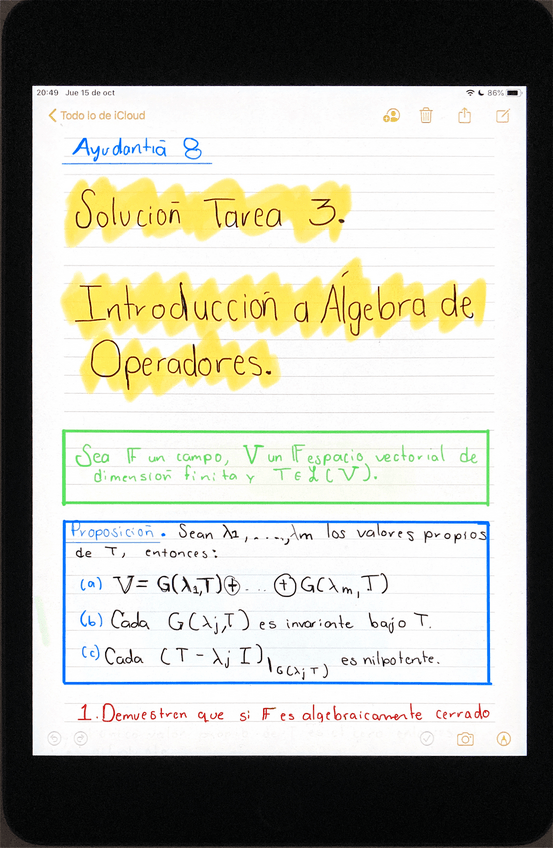 20:49 Jue 15 de oct 86%
Todo lo de iCloud
Ayudantía 8
Solución Tarea 3.
Introducción a Álgebra de
Operadores.
Sea 𝔽 un campo, V un 𝔽 espacio vectorial de
dimensión finita y T ∈ ℒ(V).
Proposición. Sean λ₁, ..., λm los valores propios
de T, entonces:
(a) V = G(λ₁,T) ⊕ ... ⊕ G(λm, T)
(b) Cada G(λj,T) es invariante bajo T.
(c) Cada (T - λj I)|G(λj T) es nilpotente.
1. Demuestren que si 𝔽 es algebraicamente cerrado